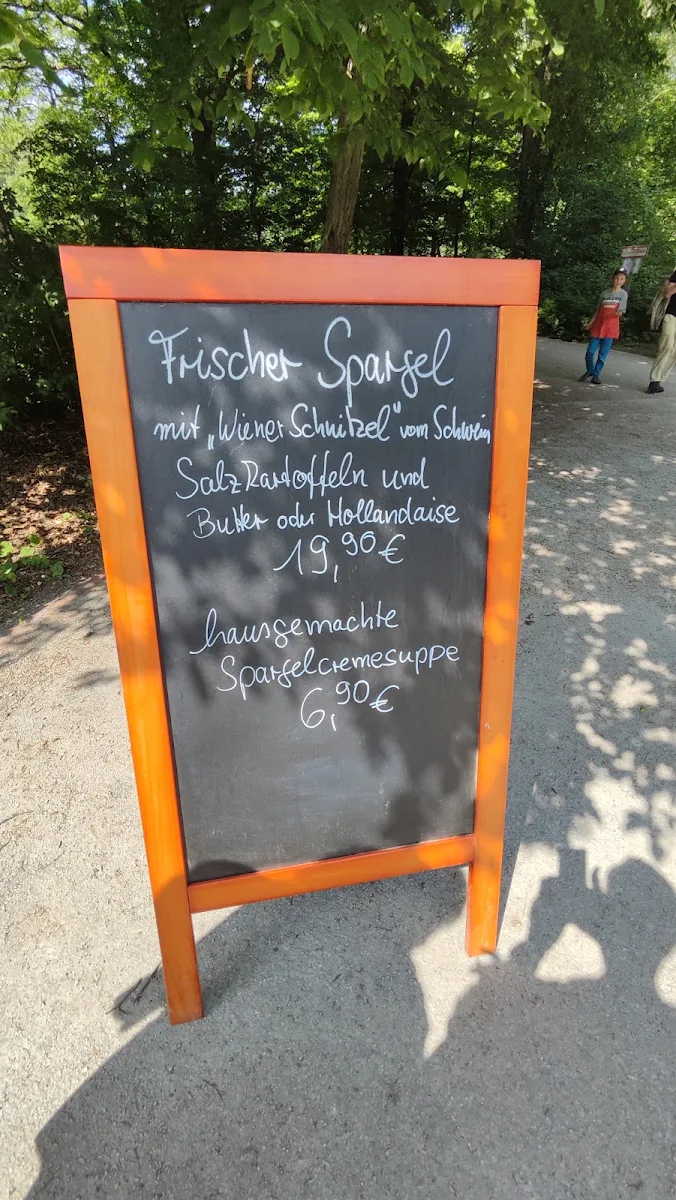 Frischer Spargel
mit „Wiener Schnitzel" vom Schwein
Salzkartoffeln und
Butter oder Hollandaise
19,90€
hausgemachte
Spargelcremesuppe
6,90€